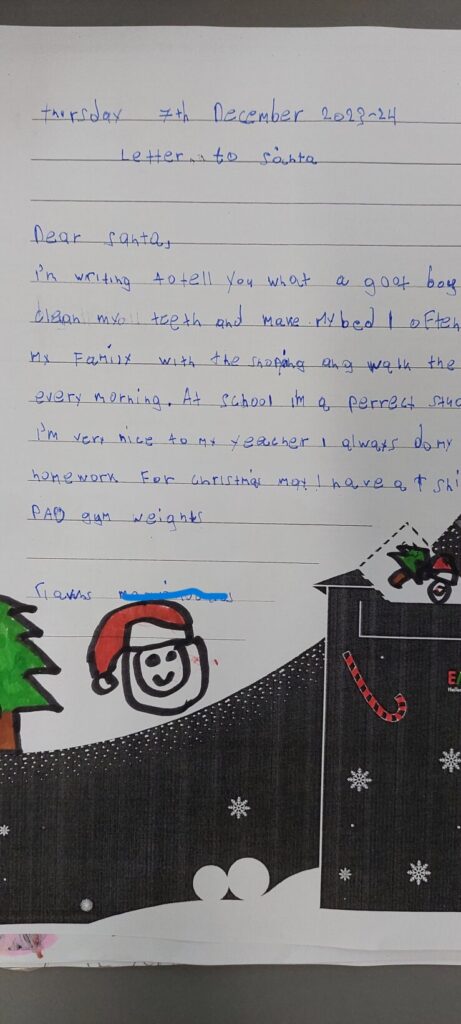 thursday 7th December 2023-24
Letter to santa
Dear santa,
I'm writing to tell you what a goot boy
clean my teeth and make My bed I often
My Family with the shoping ang walk the
every morning. At school im a perrect stud
I'm very nice to my yeacher I always do my
homework For christmas may I have a T shi
gym weights